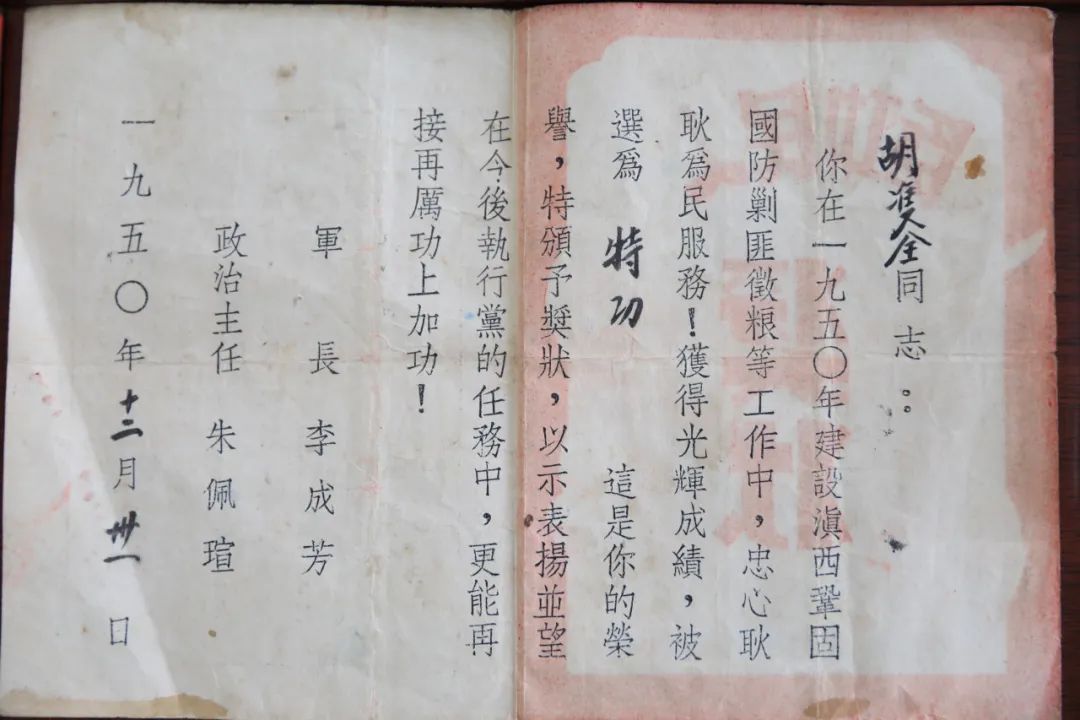 胡准全同志：
你在一九五〇年建設滇西鞏固
國防剿匪徵粮等工作中，忠心耿
耿爲民服務！獲得光輝成績，被
選爲 特功 這是你的榮
譽，特頒予獎狀，以示表揚並望
在今後執行黨的任務中，更能再
接再厲功上加功！
軍長 李成芳
政治主任 朱佩瑄
一九五〇年十二月卅一日